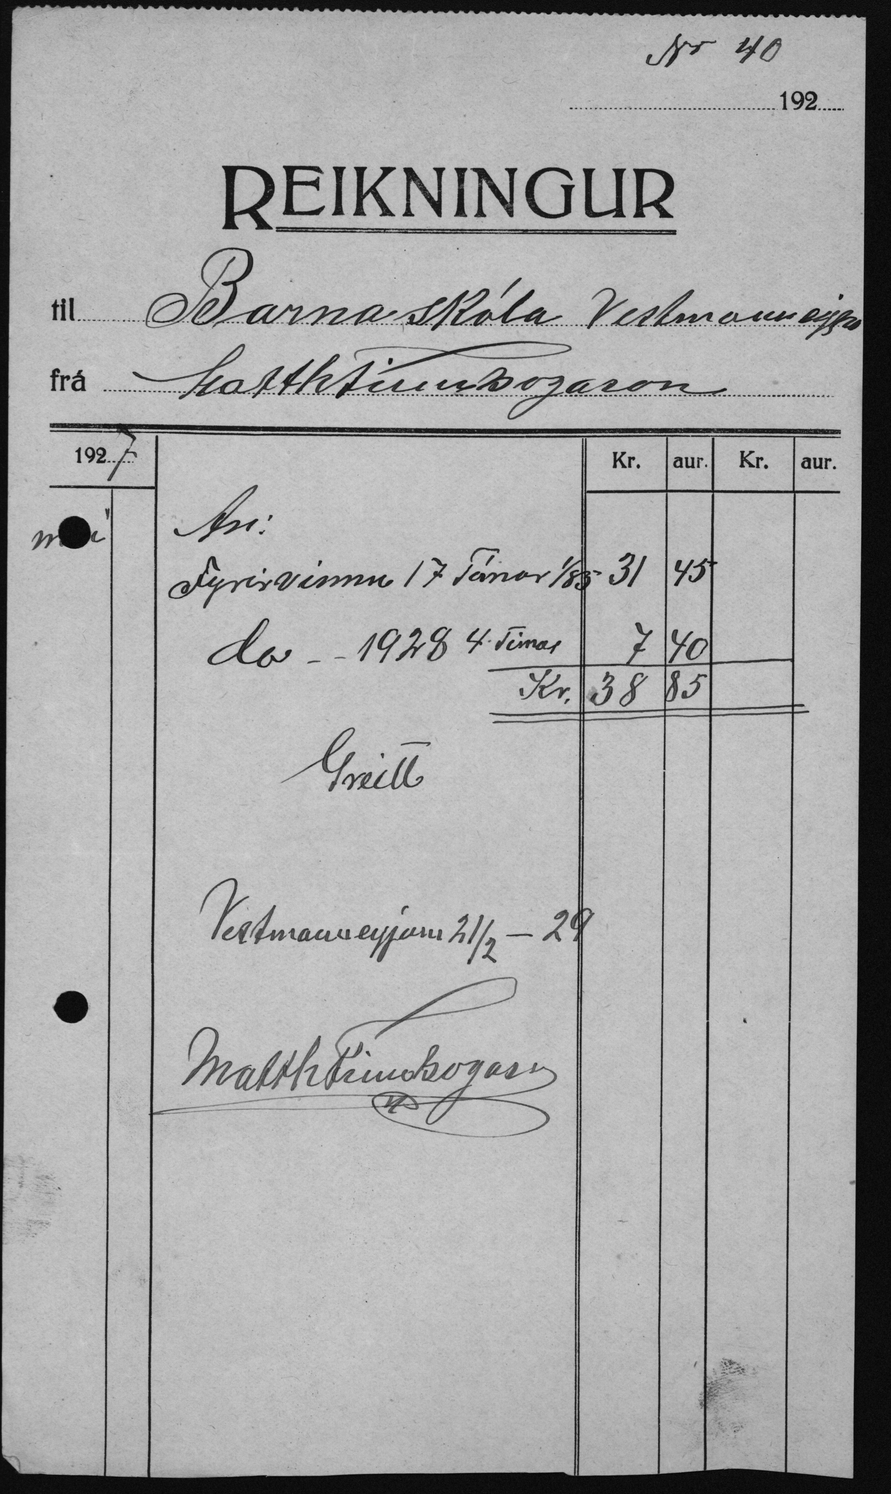 No 40
192
REIKNINGUR
til Barnaskóla Vestmannaeyja
frá Matth Finnbogason
1927 Kr. aur. Kr. aur.
maí
Fyrir vinnu 17 Tímar 1/85 31 45
do - - 1928 4 Tímar 7 40
Kr. 38 85
Greitt
Vestmannaeyjum 21/2 – 29
Matth Finnbogason